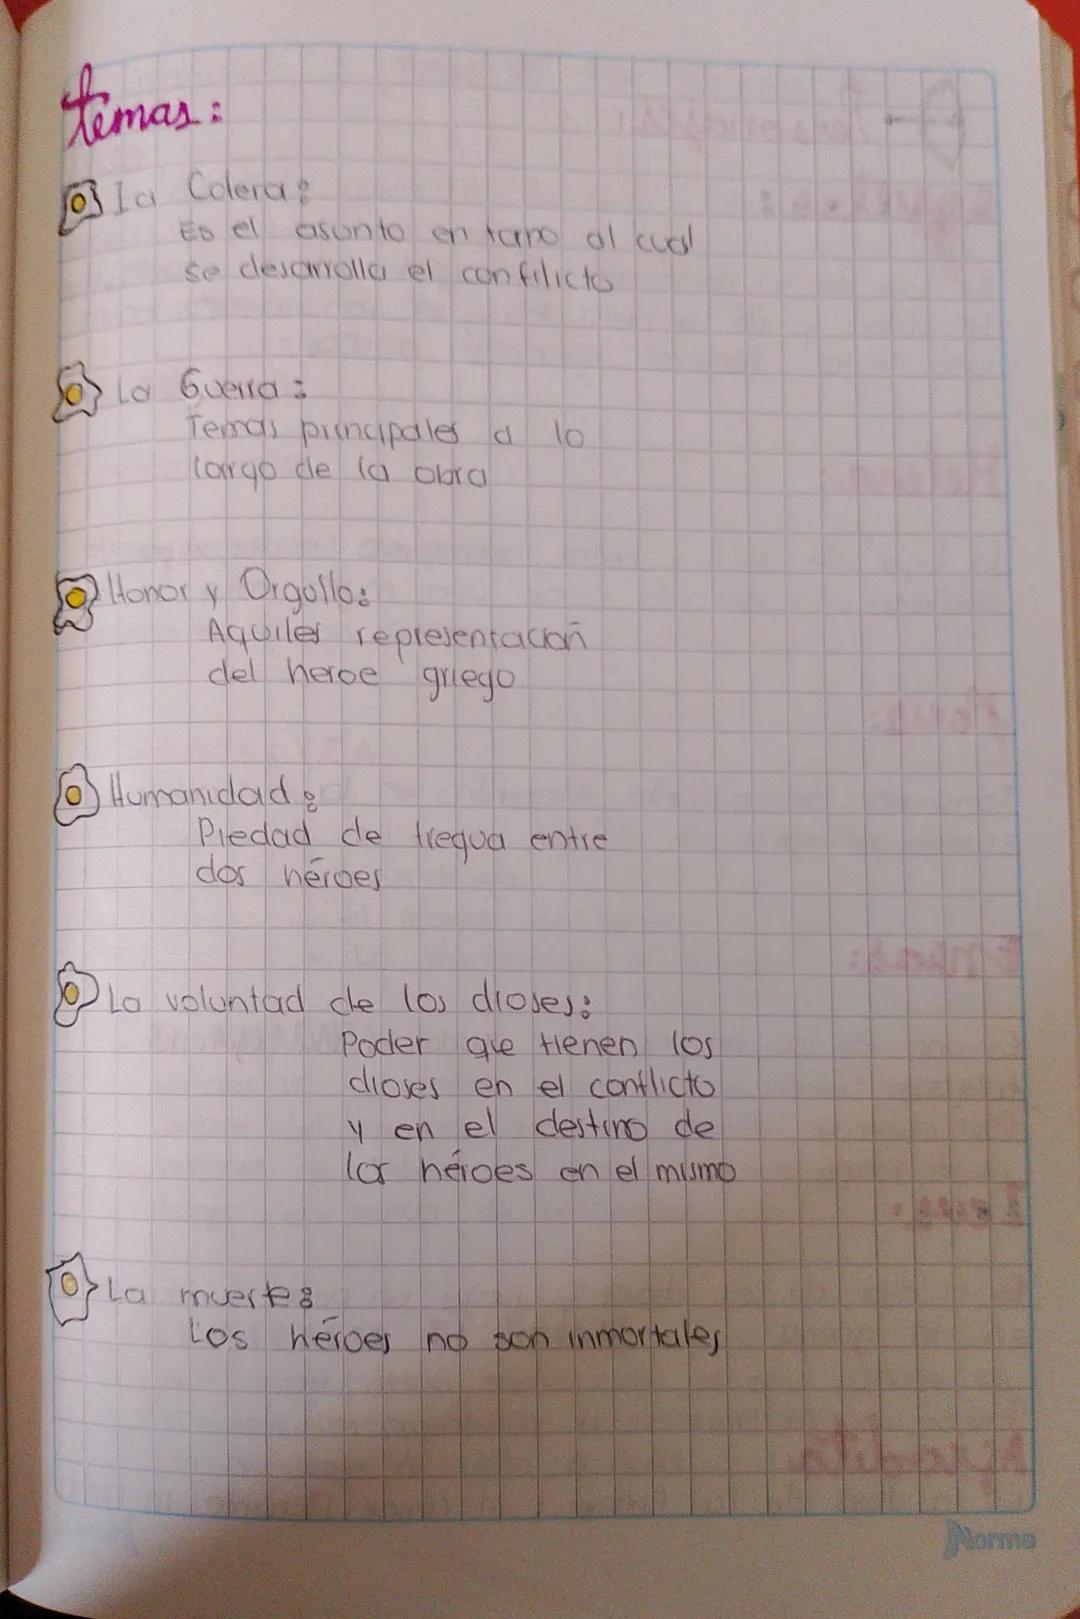 temas:
La Colera:
Es el asunto en torno al cual
se desarrolla el confilicto
La Guerra:
Temas principales a lo
largo de la obra
Honor y Orgullo:
Aquiles representación
del heroe griego
Humanidad:
Piedad de tregua entre
dos héroes
La voluntad de los dioses:
Poder que tienen los
dioses en el conflicto
y en el destino de
los héroes en el mismo
La muerte:
Los héroes no son inmortales
Norma